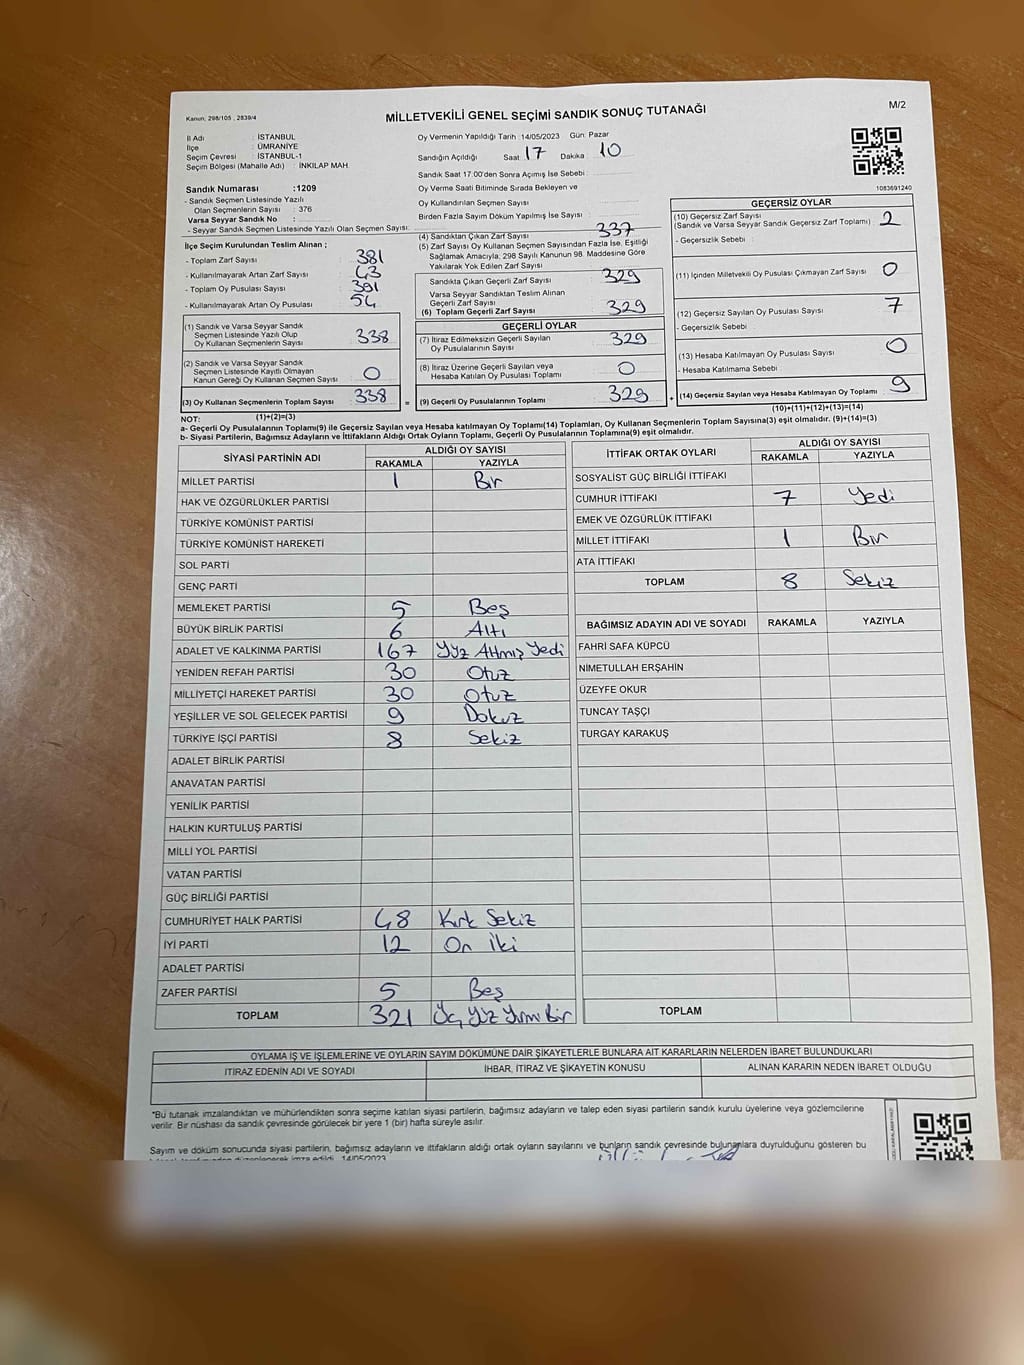 Kanun; 298/105 , 2839/4
MİLLETVEKİLİ GENEL SEÇİMİ SANDIK SONUÇ TUTANAĞI
M/2
İl Adı : İSTANBUL
İlçe : ÜMRANİYE
Seçim Çevresi : İSTANBUL-1
Seçim Bölgesi (Mahalle Adı) : İNKILAP MAH.
Sandık Numarası :1209
- Sandık Seçmen Listesinde Yazılı
Olan Seçmenlerin Sayısı : 376
Varsa Seyyar Sandık No :
- Seyyar Sandık Seçmen Listesinde Yazılı Olan Seçmen Sayısı:
Oy Vermenin Yapıldığı Tarih :14/05/2023 Gün: Pazar
Sandığın Açıldığı Saat 17 Dakika 10
Sandık Saat 17.00'den Sonra Açımış İse Sebebi :
Oy Verme Saati Bitiminde Sırada Bekleyen ve
Oy Kullandırılan Seçmen Sayısı :
Birden Fazla Sayım Döküm Yapılmış İse Sayısı :
1083691240
İlçe Seçim Kurulundan Teslim Alınan ;
- Toplam Zarf Sayısı : 381
- Kullanılmayarak Artan Zarf Sayısı : 43
- Toplam Oy Pusulası Sayısı : 391
- Kullanılmayarak Artan Oy Pusulası : 54
(1) Sandık ve Varsa Seyyar Sandık
Seçmen Listesinde Yazılı Olup
Oy Kullanan Seçmenlerin Sayısı : 338
(2) Sandık ve Varsa Seyyar Sandık
Seçmen Listesinde Kayıtlı Olmayan
Kanun Gereği Oy Kullanan Seçmen Sayısı : 0
(3) Oy Kullanan Seçmenlerin Toplam Sayısı : 338 =
(1)+(2)=(3)
(4) Sandıktan Çıkan Zarf Sayısı : 337
(5) Zarf Sayısı Oy Kullanan Seçmen Sayısından Fazla İse, Eşitliği
Sağlamak Amacıyla, 298 Sayılı Kanunun 98. Maddesine Göre
Yakılarak Yok Edilen Zarf Sayısı :
Sandıkta Çıkan Geçerli Zarf Sayısı : 329
Varsa Seyyar Sandıktan Teslim Alınan
Geçerli Zarf Sayısı :
(6) Toplam Geçerli Zarf Sayısı : 329
GEÇERLİ OYLAR
(7) İtiraz Edilmeksizin Geçerli Sayılan
Oy Pusulalarının Sayısı : 329
(8) İtiraz Üzerine Geçerli Sayılan veya
Hesaba Katılan Oy Pusulası Toplamı : 0
(9) Geçerli Oy Pusulalarının Toplamı : 329 +
GEÇERSİZ OYLAR
(10) Geçersiz Zarf Sayısı : 2
(Sandık ve Varsa Seyyar Sandık Geçersiz Zarf Toplamı)
- Geçersizlik Sebebi :
(11) İçinden Milletvekili Oy Pusulası Çıkmayan Zarf Sayısı : 0
(12) Geçersiz Sayılan Oy Pusulası Sayısı : 7
- Geçersizlik Sebebi :
(13) Hesaba Katılmayan Oy Pusulası Sayısı : 0
- Hesaba Katılmama Sebebi :
(14) Geçersiz Sayılan veya Hesaba Katılmayan Oy Toplamı : 9
(10)+(11)+(12)+(13)=(14)
NOT:
a- Geçerli Oy Pusulalarının Toplamı(9) ile Geçersiz Sayılan veya Hesaba katılmayan Oy Toplamı(14) Toplamları, Oy Kullanan Seçmenlerin Toplam Sayısına(3) eşit olmalıdır. (9)+(14)=(3)
b- Siyasi Partilerin, Bağımsız Adayların ve İttifakların Aldığı Ortak Oyların Toplamı, Geçerli Oy Pusulalarının Toplamına(9) eşit olmalıdır.
SİYASİ PARTİNİN ADI ALDIĞI OY SAYISI
RAKAMLA YAZIYLA
MİLLET PARTİSİ 1 Bir
HAK VE ÖZGÜRLÜKLER PARTİSİ
TÜRKİYE KOMÜNİST PARTİSİ
TÜRKİYE KOMÜNİST HAREKETİ
SOL PARTİ
GENÇ PARTİ
MEMLEKET PARTİSİ 5 Beş
BÜYÜK BİRLİK PARTİSİ 6 Altı
ADALET VE KALKINMA PARTİSİ 167 Yüz Altmış Yedi
YENİDEN REFAH PARTİSİ 30 Otuz
MİLLİYETÇİ HAREKET PARTİSİ 30 Otuz
YEŞİLLER VE SOL GELECEK PARTİSİ 9 Dokuz
TÜRKİYE İŞÇİ PARTİSİ 8 Sekiz
ADALET BİRLİK PARTİSİ
ANAVATAN PARTİSİ
YENİLİK PARTİSİ
HALKIN KURTULUŞ PARTİSİ
MİLLİ YOL PARTİSİ
VATAN PARTİSİ
GÜÇ BİRLİĞİ PARTİSİ
CUMHURİYET HALK PARTİSİ 48 Kırk Sekiz
İYİ PARTİ 12 On İki
ADALET PARTİSİ
ZAFER PARTİSİ 5 Beş
TOPLAM 321 Üç Yüz Yirmi Bir
İTTİFAK ORTAK OYLARI ALDIĞI OY SAYISI
RAKAMLA YAZIYLA
SOSYALİST GÜÇ BİRLİĞİ İTTİFAKI
CUMHUR İTTİFAKI 7 Yedi
EMEK VE ÖZGÜRLÜK İTTİFAKI
MİLLET İTTİFAKI 1 Bir
ATA İTTİFAKI
TOPLAM 8 Sekiz
BAĞIMSIZ ADAYIN ADI VE SOYADI RAKAMLA YAZIYLA
FAHRİ SAFA KÜPCÜ
NİMETULLAH ERŞAHİN
ÜZEYFE OKUR
TUNCAY TAŞÇI
TURGAY KARAKUŞ
TOPLAM
OYLAMA İŞ VE İŞLEMLERİNE VE OYLARIN SAYIM DÖKÜMÜNE DAİR ŞİKAYETLERLE BUNLARA AİT KARARLARIN NELERDEN İBARET BULUNDUKLARI
İTİRAZ EDENİN ADI VE SOYADI İHBAR, İTİRAZ VE ŞİKAYETİN KONUSU ALINAN KARARIN NEDEN İBARET OLDUĞU
"Bu tutanak imzalandıktan ve mühürlendikten sonra seçime katılan siyasi partilerin, bağımsız adayların ve talep eden siyasi partilerin sandık kurulu üyelerine veya gözlemcilerine
verilir. Bir nüshası da sandık çevresinde görülecek bir yere 1 (bir) hafta süreyle asılır.
Sayım ve döküm sonucunda siyasi partilerin, bağımsız adayların ve ittifakların aldığı ortak oyların sayılarını ve bunların sandık çevresinde bulunanlara duyrulduğunu gösteren bu
düzenlenerek imza edildi. 14/05/2023